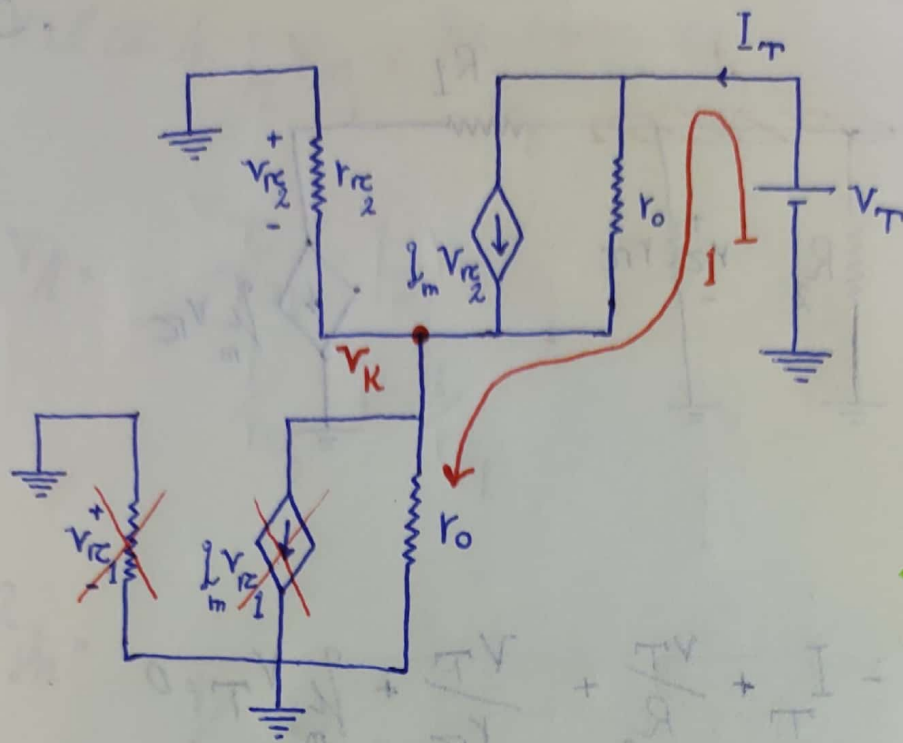 I_T
+
v_π2
-
r_π2
g_m v_π2
r_o
V_T
1
v_K
+
v_π1
-
g_m v_π1
r_o